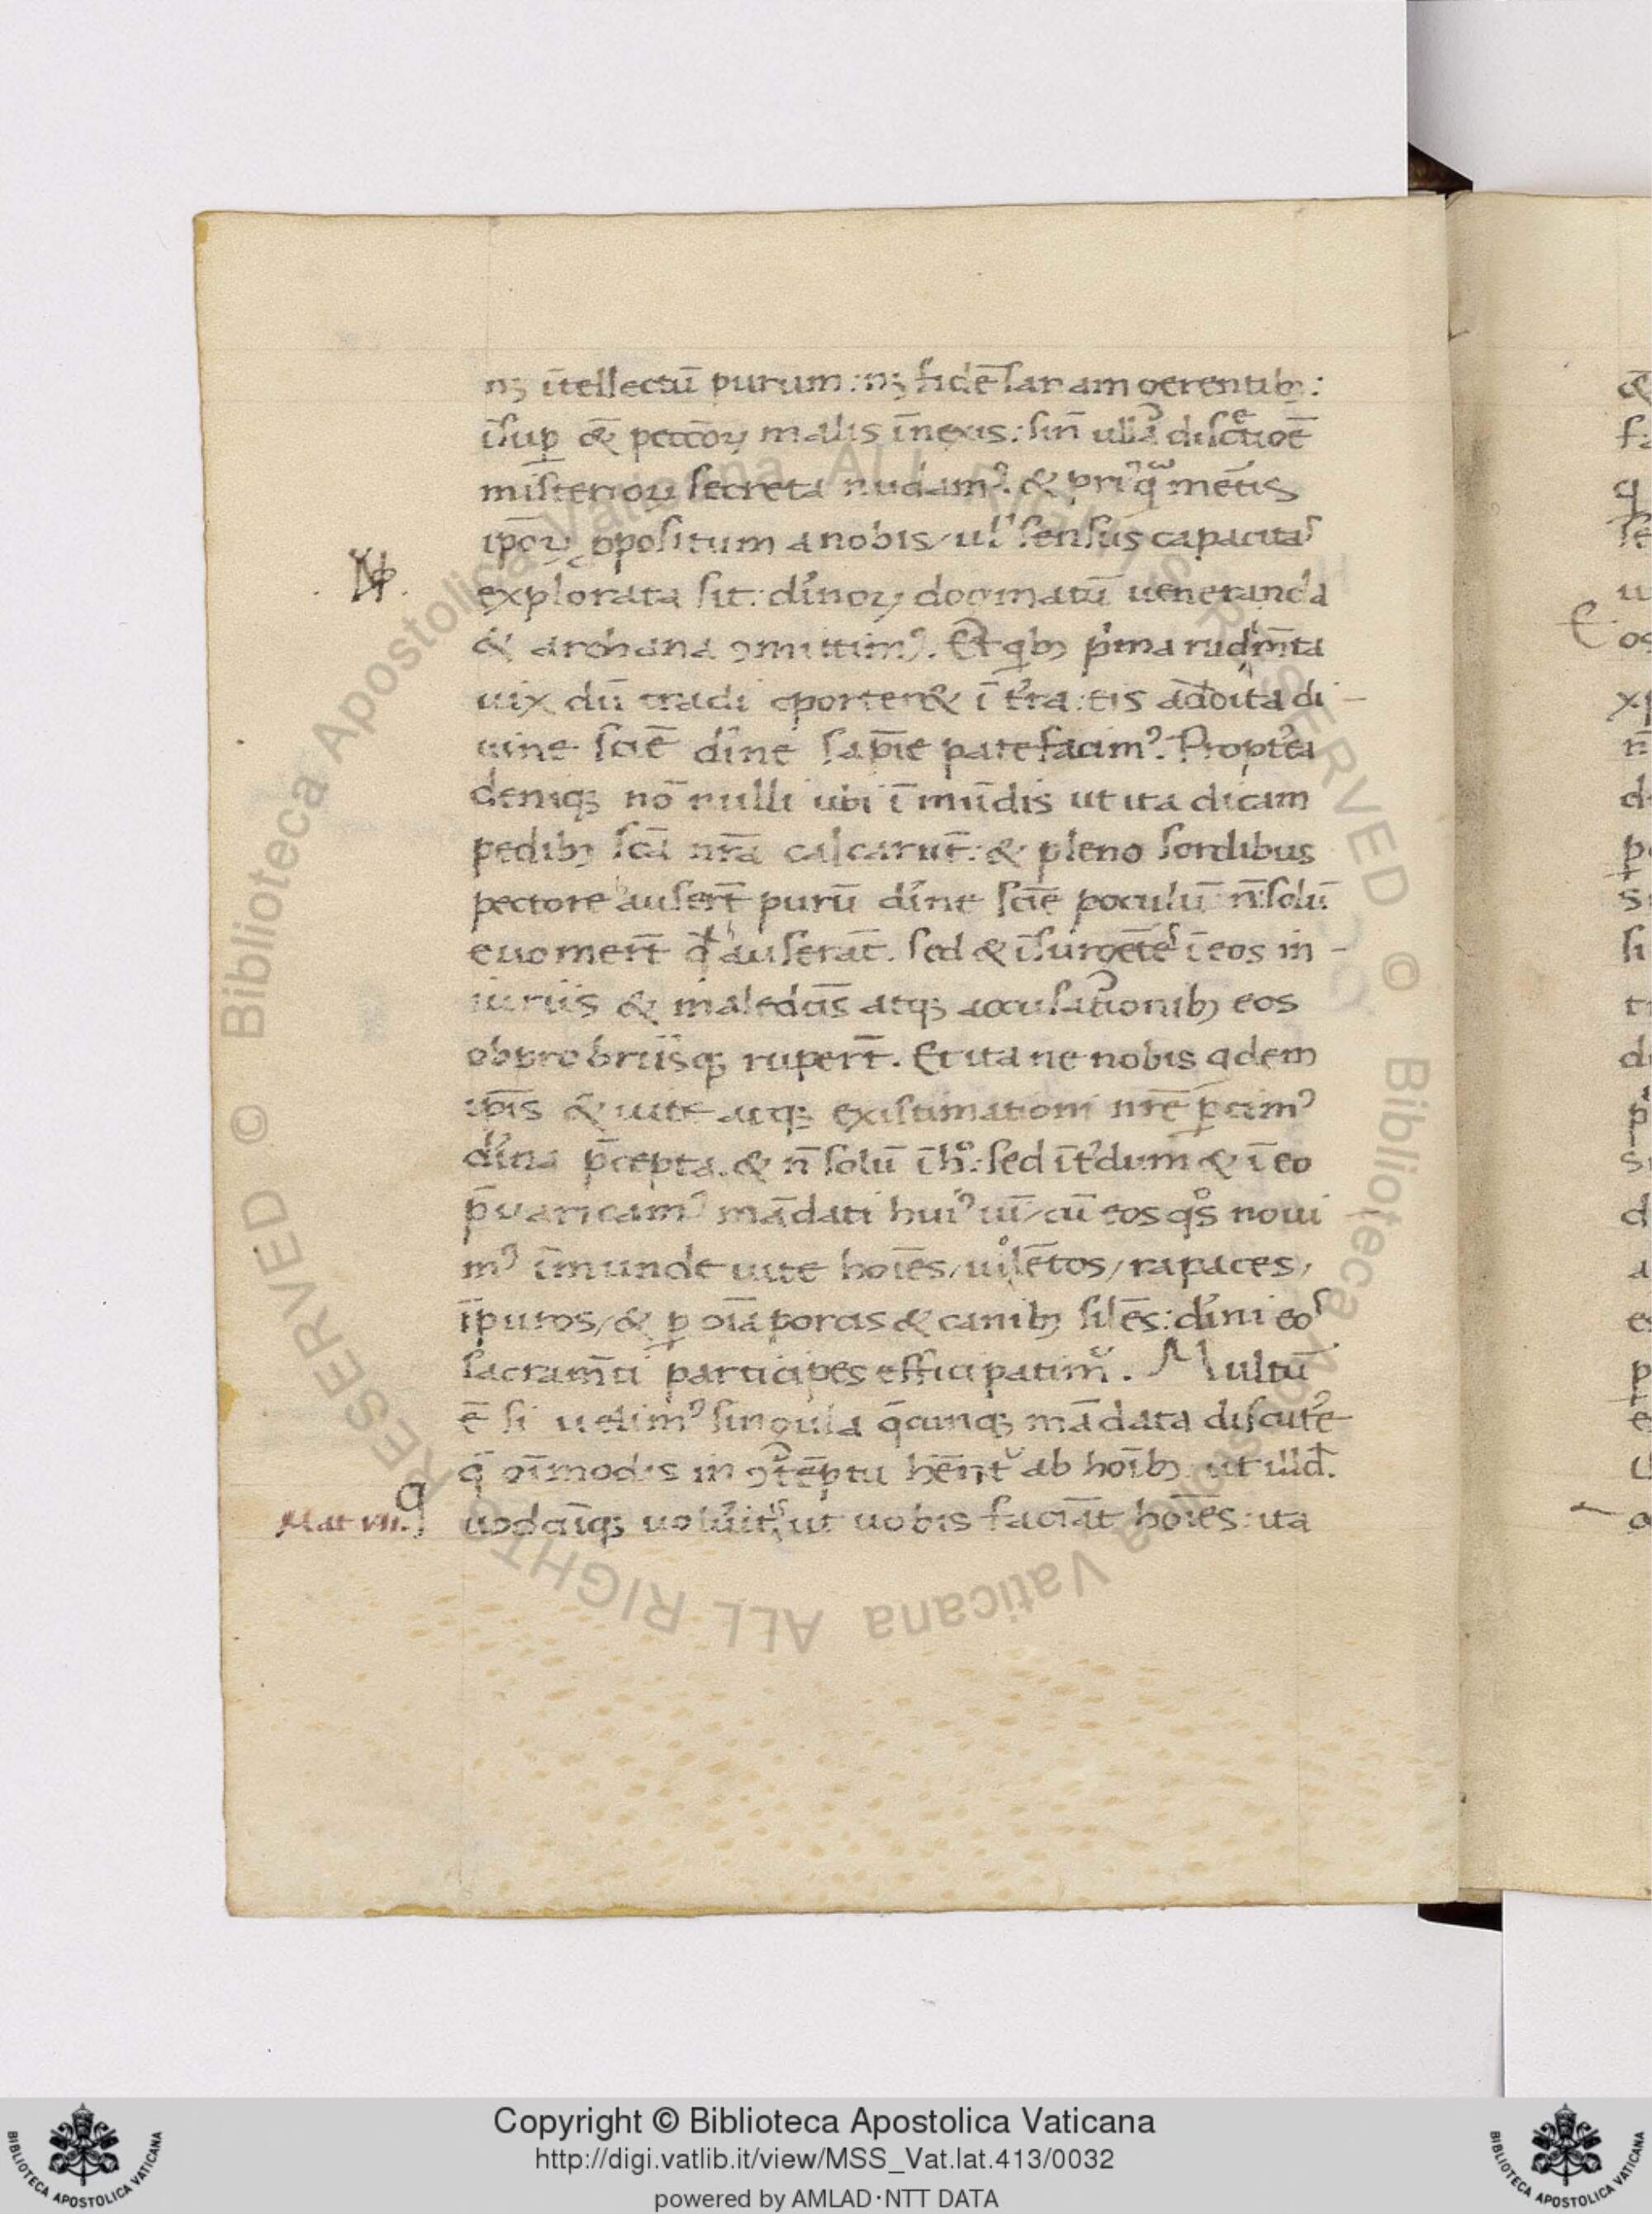 nꝫ ītellectū purum: nꝫ fidē sanam gerentibꝫ:
īsuꝑ & peccōꝝ malis īnexis: sin̄ ulla discͤtioē
misterioꝝ secreta nudamꝰ. & priꝰq̃ mētis
ip̄oꝝ ꝓpositum a nobis, ul' sensus capacitas
explorata sit: diⁱnoꝝ dogmatū ueneranda
& archana ꝯmittimꝰ. Et qͥbꝫ pͥma rudim̄ta
uix dū tradi oporter& ī tr̄a: tis adoita di-
uine sciē diⁱne sapīe patefacimꝰ. Propt'ea
deniqꝫ nō nulli ubi ī mūdis ut ita dicam
pedibꝫ scā nr̄ā calcarūt: & pleno sordibus
pectore hauser̄t purū diⁱne sciē poculū n̄ solū
euomer̄t qd̛ hauserāt. sed & īsurgētes ī eos in-
iuriis & maledcīs atqꝫ accusationibꝫ eos
obprobriisqꝫ ruper̄t. Et ita ne nobis qͥdem
ip̄is & uite atqꝫ existimationi nrē ꝑcimꝰ
diⁱna p̄cepta. & n̄ solū ī hͦ: sed īt'dum & ī eo
p̄uaricamꝰ mādati huiꝰ uī, cū eos qͦs noui
mꝰ īmunde uite hoīes, uiͦlētos, rapaces,
īpuros, & ꝑ oīa porcis & canibꝫ silēs: diⁱni eos
sacram̄ti participes effici patimur. Multū
ē si uelimꝰ singula q̄cunqꝫ mādata discut'e
q̄ oīmodis in ꝯtēptu hēnt᷑ ab hoībꝫ ut illd̄.
Mat vii. Quodcūqꝫ uolu'itis ut uobis faciāt hoīes: ita
Copyright © Biblioteca Apostolica Vaticana
http://digi.vatlib.it/view/MSS_Vat.lat.413/0032
powered by AMLAD·NTT DATA